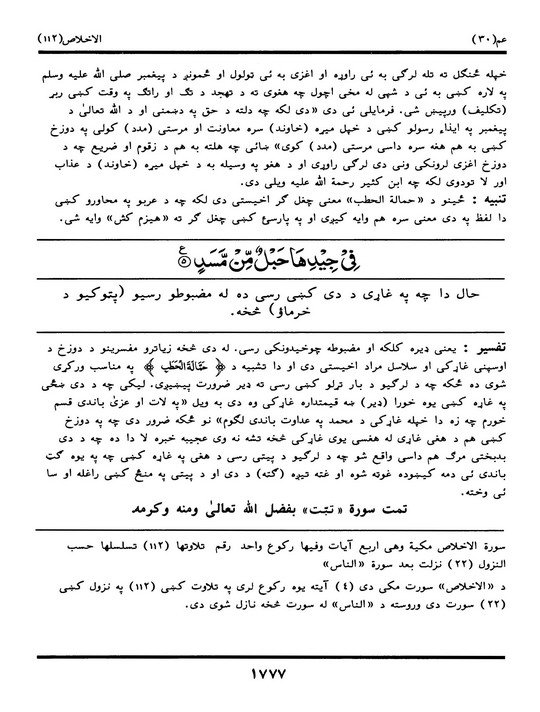 عم(۳۰)
الاخلاص(۱۱۲)
خپله څنګل ته تله لرګی به ئی راوړه او اغزی به ئی تولول او څمونږ د پیغمبر صلی الله علیه وسلم
په لاره کښی به ئی د شپی له مخی اچول چه هغوی ته د تهجد د تګ او راتګ په وقت کښی ربړ
(تکلیف) ورپیښ شی. فرمایلی ئی دی «دی لکه چه دلته د حق په دښمنی او د الله تعالیٰ د
پیغمبر په ایذاء رسولو کښی د خپل میړه (خاوند) سره معاونت او مرستی (مدد) کولی په دوزخ
کښی به هم هغه سره داسی مرستی (مدد) کوی» ښائی چه هلته به هم د زقوم او ضریع چه د
دوزخ اغزی لرونکی ونی دی لرګی راوړی او د هغو په وسیله به د خپل میړه (خاوند) د عذاب
اور لا تودوی لکه چه ابن کثیر رحمة الله علیه ویلی دی.
تنبیه : ځینو د «حمالة الحطب» معنی چغل ګر اخیستی دی لکه چه د عربو په محاورو کښی
دا لفظ په دی معنی سره هم وایه کیږی او په پارسئ کښی چغل ګر ته «هیزم کش» وایه شی.
فِیْ جِیْدِهَا حَبْلٌ مِّنْ مَّسَدٍ ۵ ع
حال دا چه په غاړی د دی کښی رسی ده له مضبوطو رسیو (پتوکیو د
خرماؤ) څخه.
تفسیر : یعنی ډیره کلکه او مضبوطه چوخیدونکی رسی. له دی څخه زیاترو مفسرینو د دوزخ د
اوسپنی غاړکی او سلاسل مراد اخیستی دی او دا تشبیه د ﴿حَمَّالَةَ الْحَطَبِ﴾ په مناسب ورکړی
شوی ده ځکه چه د لرګیو د بار تړلو کښی رسی ته ډیر ضرورت پیښیږی. لیکی چه د دی ښځی
په غاړه کښی یوه خورا (ډیر) ښه قیمتداره غاړکی وه دی به ویل «په لات او عزیٰ باندی قسم
خورم چه زه دا خپله غاړکی د محمد په عداوت باندی لګوم» نو ځکه ضرور دی چه په دوزخ
کښی هم د هغی غاړی له هغسی یوی غاړکی څخه تشه نه وی عجیبه خبره لا دا ده چه د دی
بدبختی مرګ هم داسی واقع شو چه د لرګیو د پیتی رسی د هغی په غاړه کښی چه په یوه ګټ
باندی ئی دمه کیښوده غوته شوه او غته تیږه (ګته) د دی او د پیتی په منځ کښی راغله او سا
ئی وخته.
تمت سورة «تبّت» بفضل الله تعالیٰ ومنه وکرمه
سورة الاخلاص مکیة وهی اربع آیات وفیها رکوع واحد رقم تلاوتها (۱۱۲) تسلسلها حسب
النزول (۲۲) نزلت بعد سورة «الناس»
د «الاخلاص» سورت مکی دی (٤) آیته یوه رکوع لری په تلاوت کښی (۱۱۲) په نزول کښی
(۲۲) سورت دی وروسته د «الناس» له سورت څخه نازل شوی دی.
۱۷۷۷